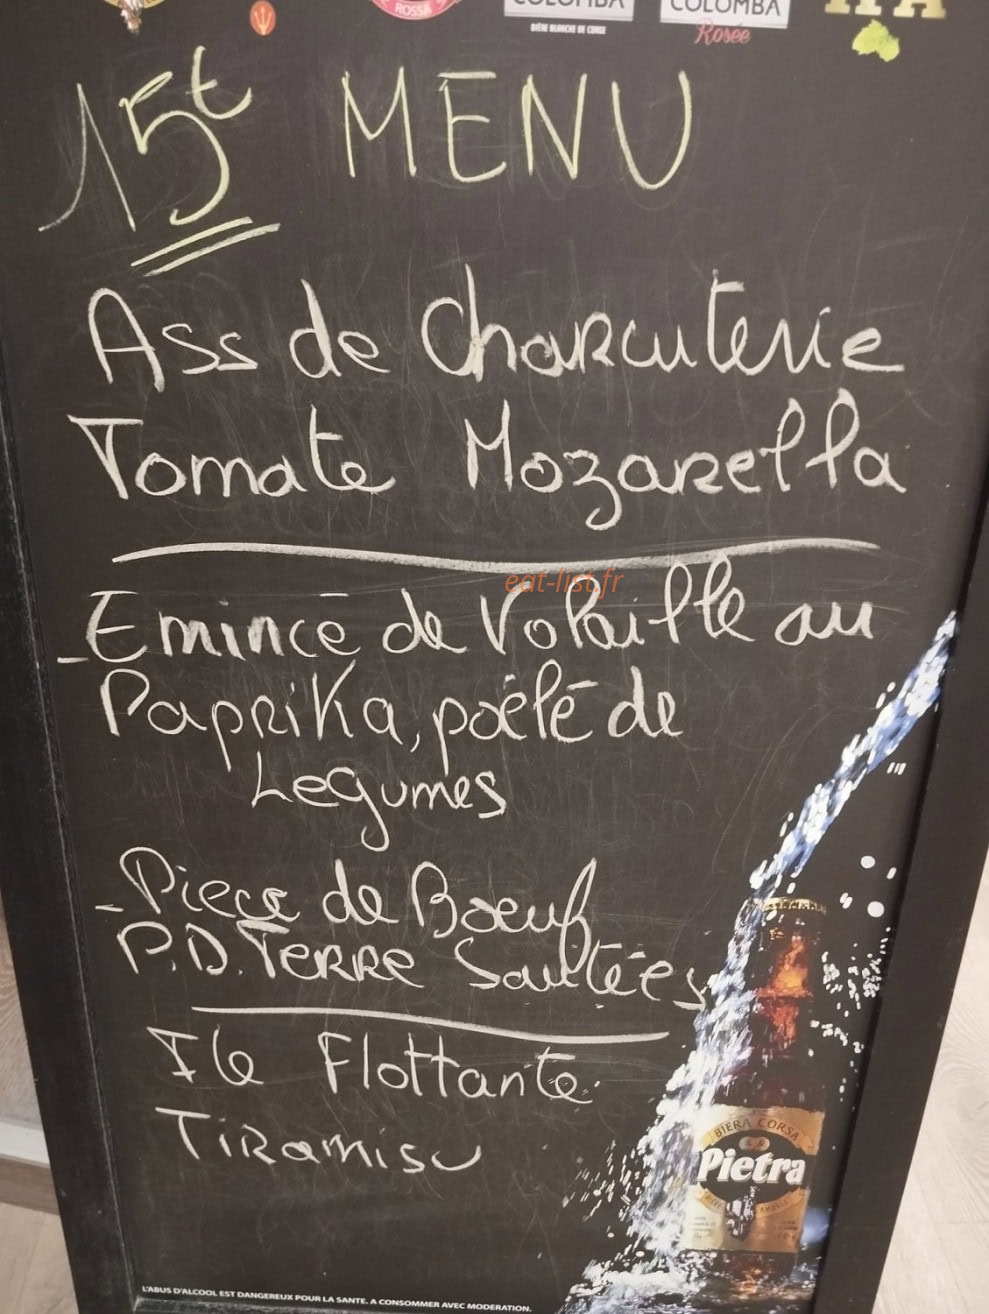 ROSSA
COLOMBA
BIÈRE BLANCHE DE CORSE
COLOMBA
Rosée
IPA
15t MENU
Ass de Charcuterie
Tomate Mozarella
eat-list.fr
- Emincé de Volaille au
Paprika, poêlé de
Legumes
- Piece de Boeuf
P.D.Terre Sautées
Ile Flottante
Tiramisu
BIERA CORSA
Pietra
L'ABUS D'ALCOOL EST DANGEREUX POUR LA SANTE. A CONSOMMER AVEC MODERATION.